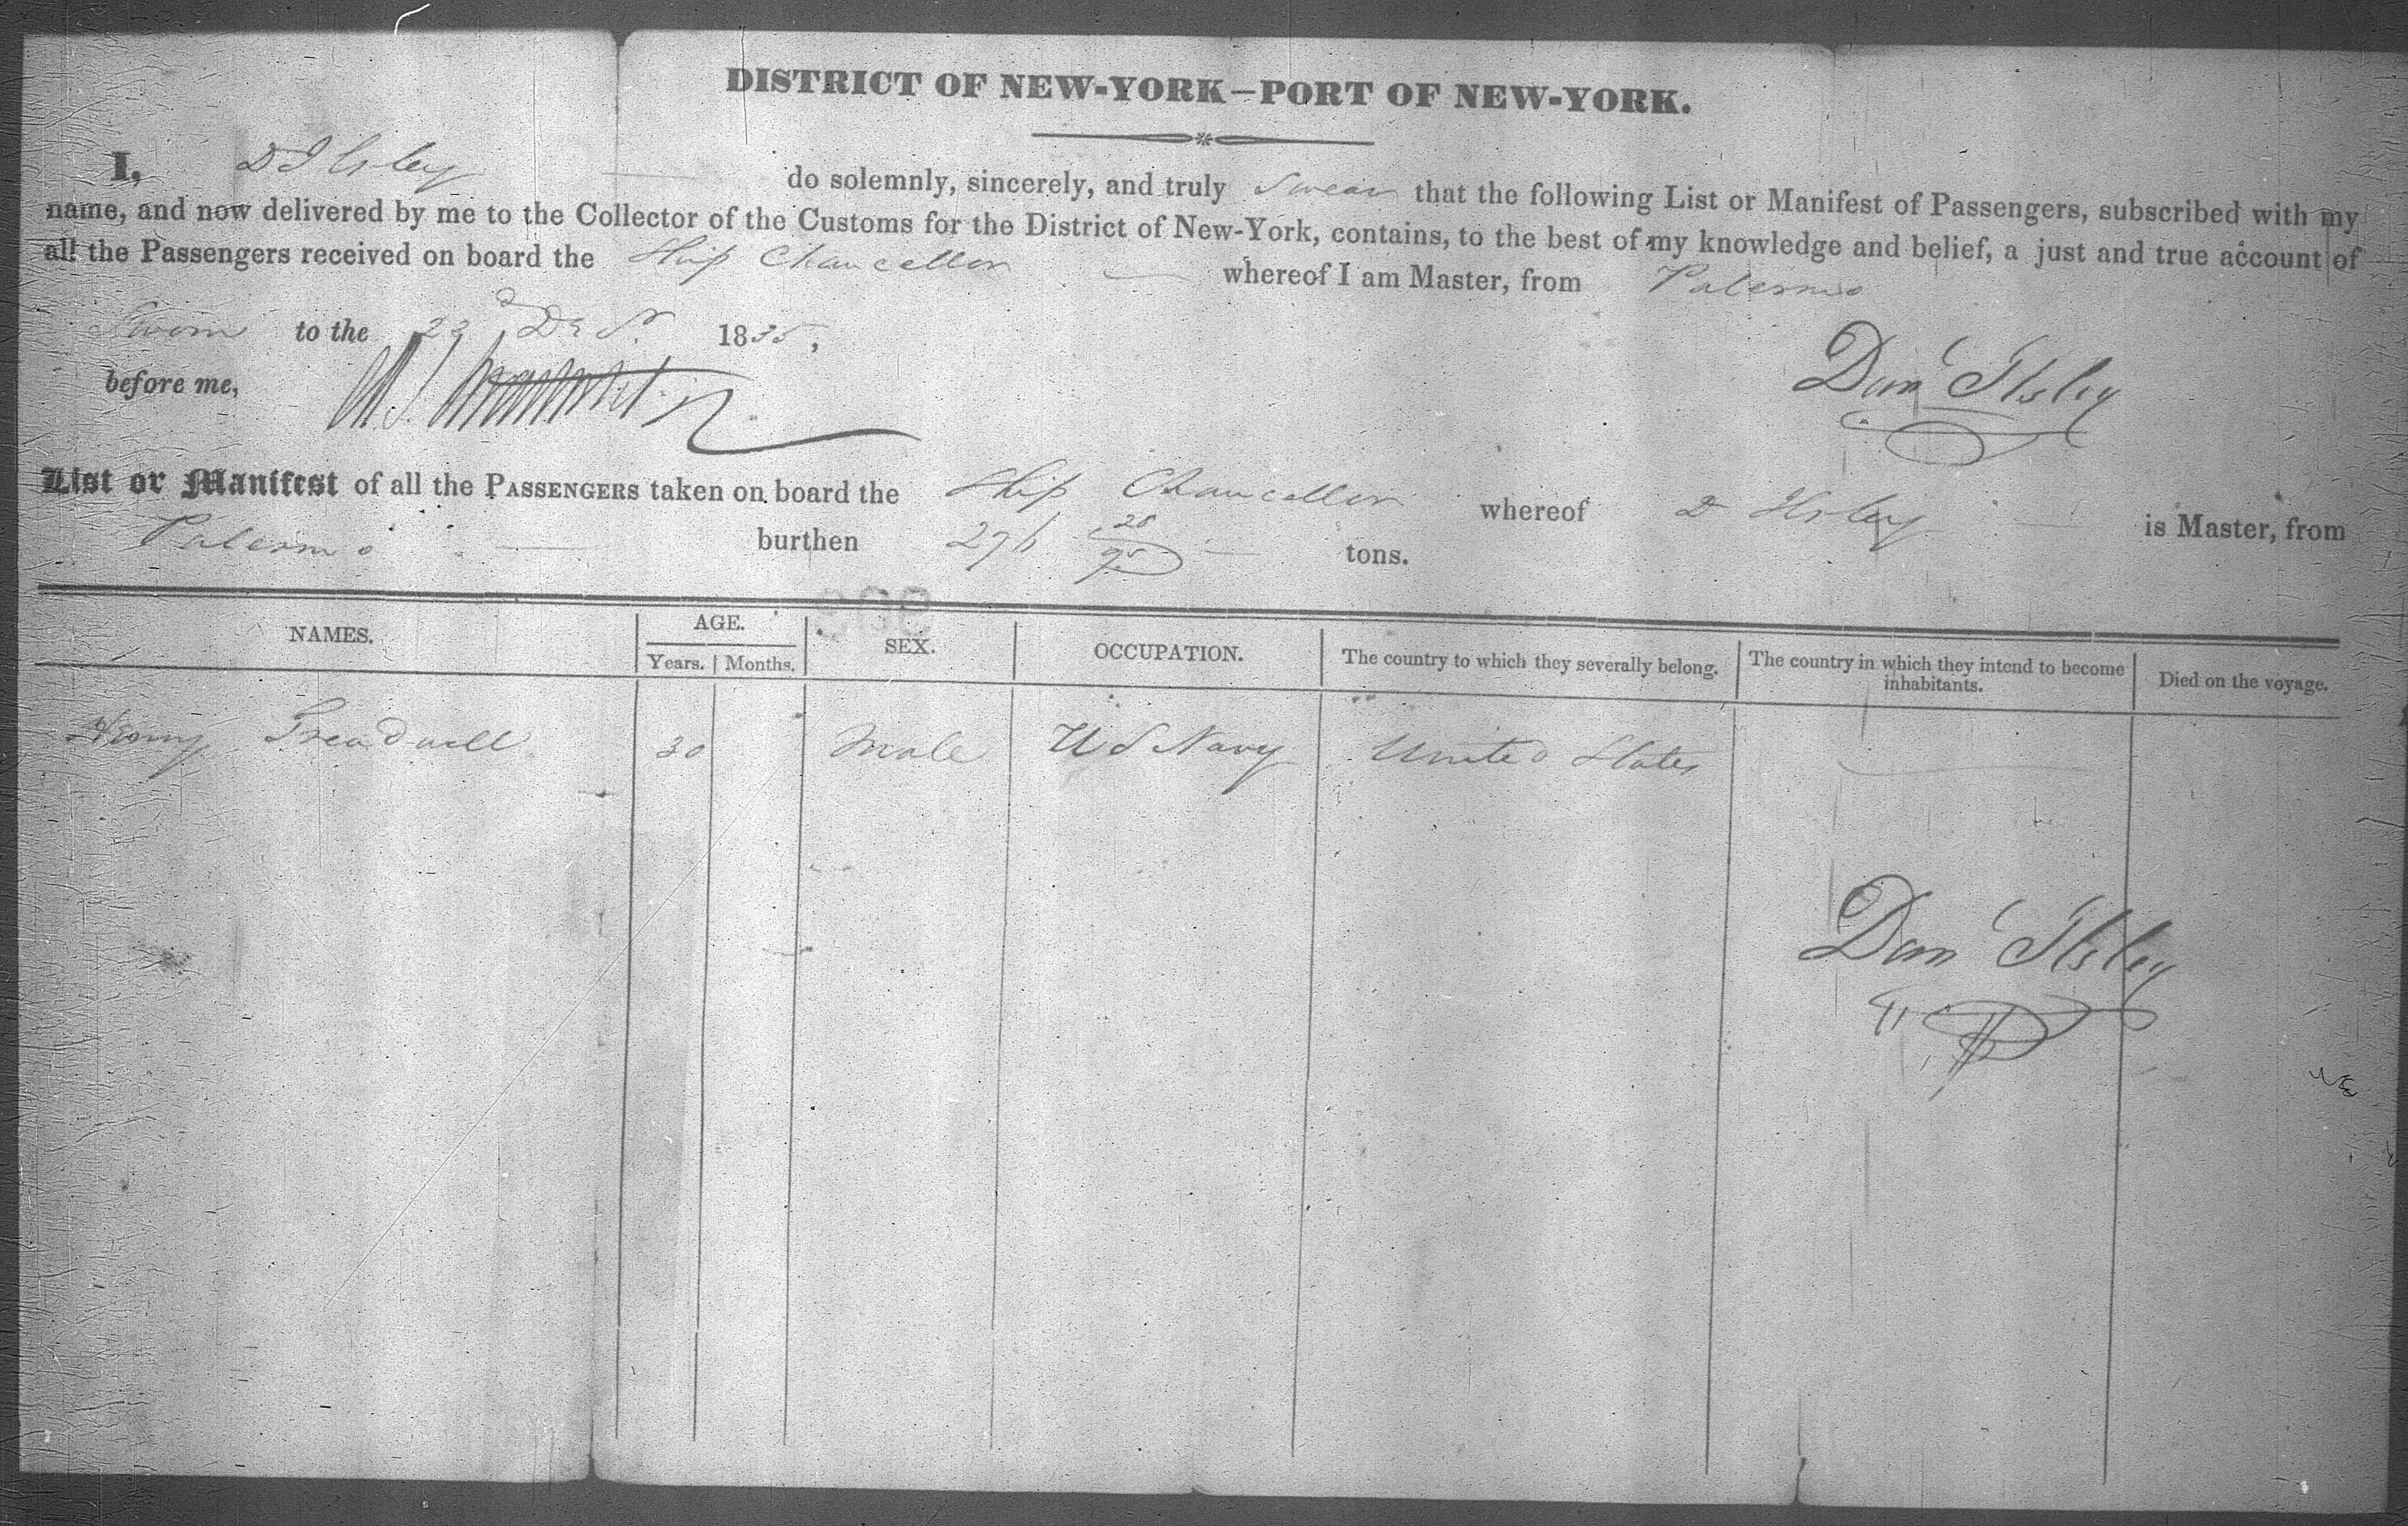 DISTRICT OF NEW-YORK—PORT OF NEW-YORK.
I, D Ilsley do solemnly, sincerely, and truly Swear that the following List or Manifest of Passengers, subscribed with my
name, and now delivered by me to the Collector of the Customs for the District of New-York, contains, to the best of my knowledge and belief, a just and true account of
all the Passengers received on board the Ship Chancellor whereof I am Master, from Palermo
Sworn to the 23 1835,
before me,
Danl Ilsley
List or Manifest of all the PASSENGERS taken on board the Ship Chancellor whereof D Ilsley is Master, from
Palermo burthen 276 28/95 tons.
NAMES. AGE. SEX. OCCUPATION. The country to which they severally belong. The country in which they intend to become inhabitants. Died on the voyage.
Years. Months.
Henry Treadwell 30 Male U S Navy United States
Danl Ilsley